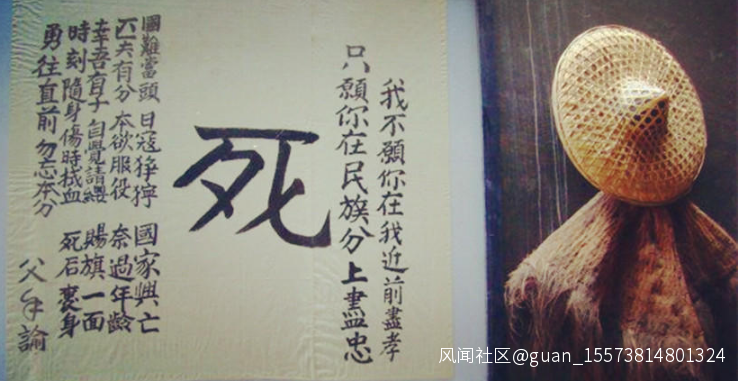 我不願你在我近前盡孝
只願你在民族分上盡忠
死
國難當頭 日寇猙獰 國家興亡
匹夫有分 本欲服役 奈過年齡
幸吾有子 自覺請纓 賜旗一面
時刻隨身 傷時拭血 死后裹身
勇往直前 勿忘本分
父手諭
风闻社区@guan_15573814801324